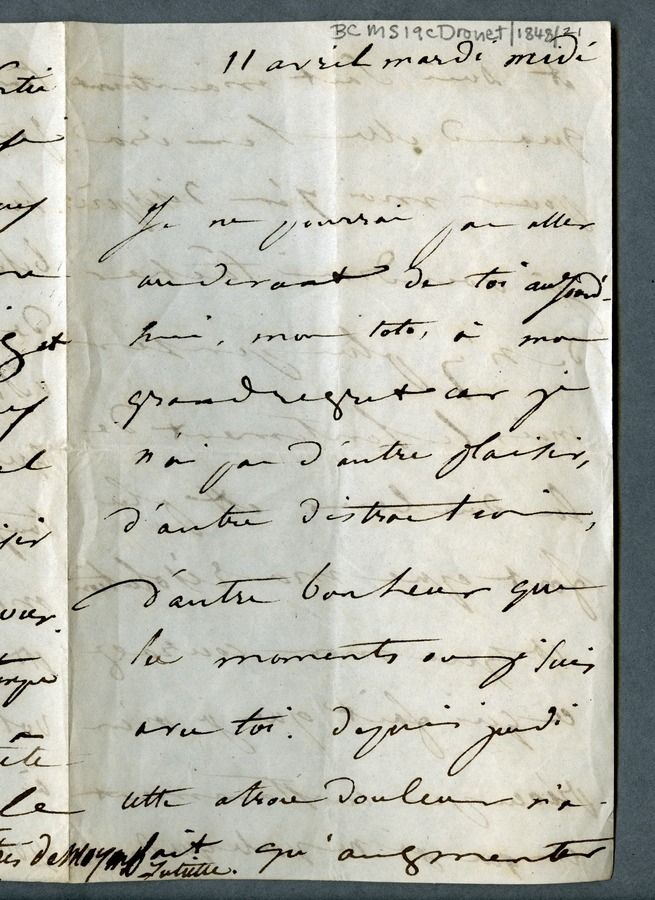 BC MS 19c Drouet/1848/21
11 avril mardi midi
Je ne pourrai pas aller
au devant de toi aujourd-
hui, mon toto, à mon
grand regret car je
n'ai pas d'autre plaisir,
d'autre distraction,
d'autre bonheur que
les moments où je suis
avec toi. Depuis jeudi
cette atroce douleur n'a
fait qu'augmenter
Juliette.